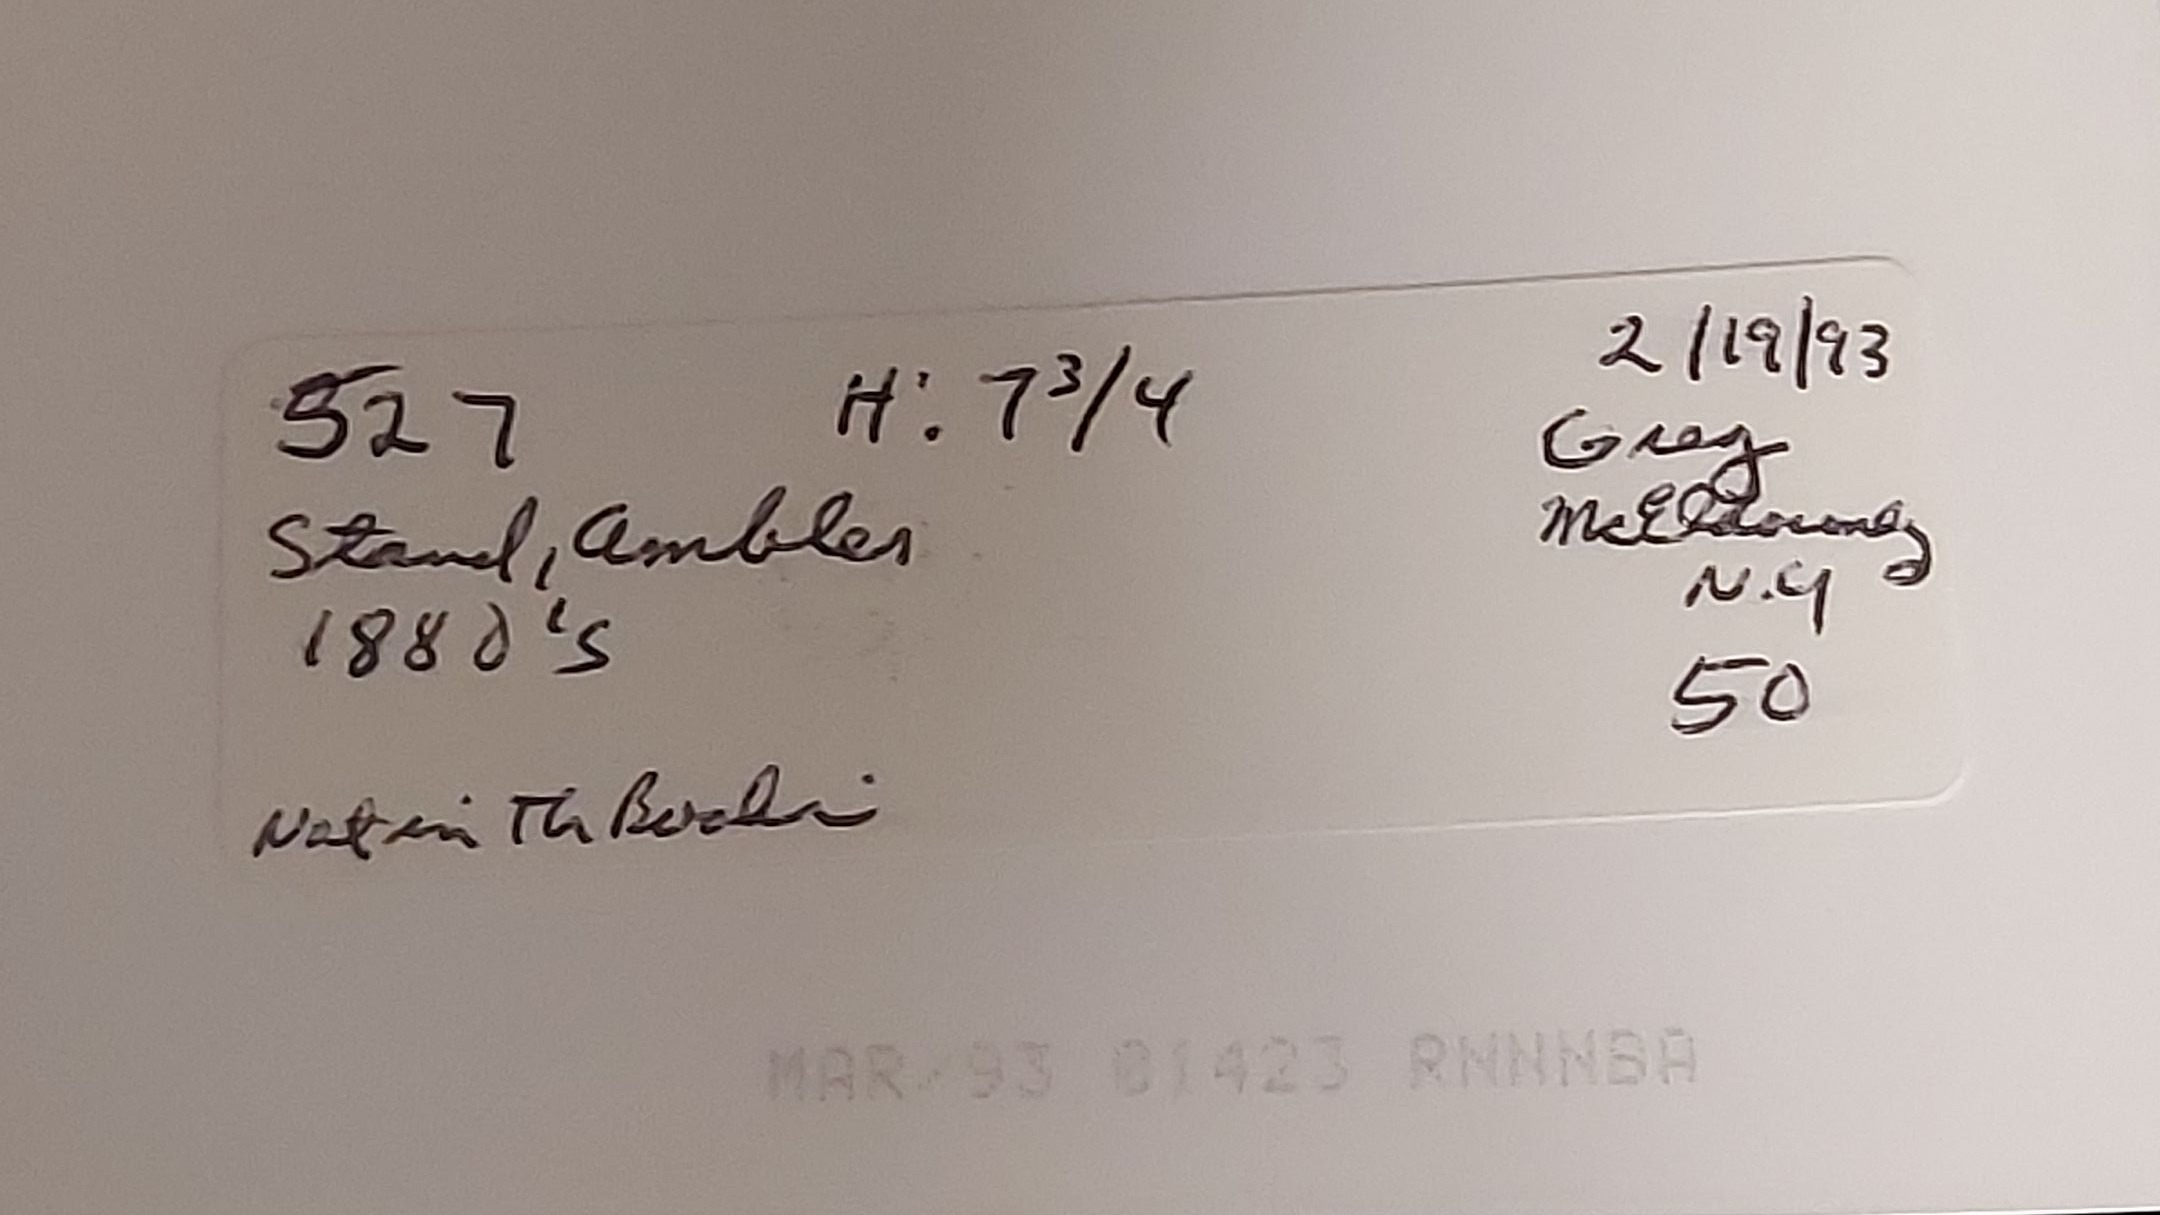 527 H: 7 3/4 2/19/93
Stand, Ambler Greg
1880's McEldowney
N.Y
50
Not in Th
MAR 93 01423 RNNNBA